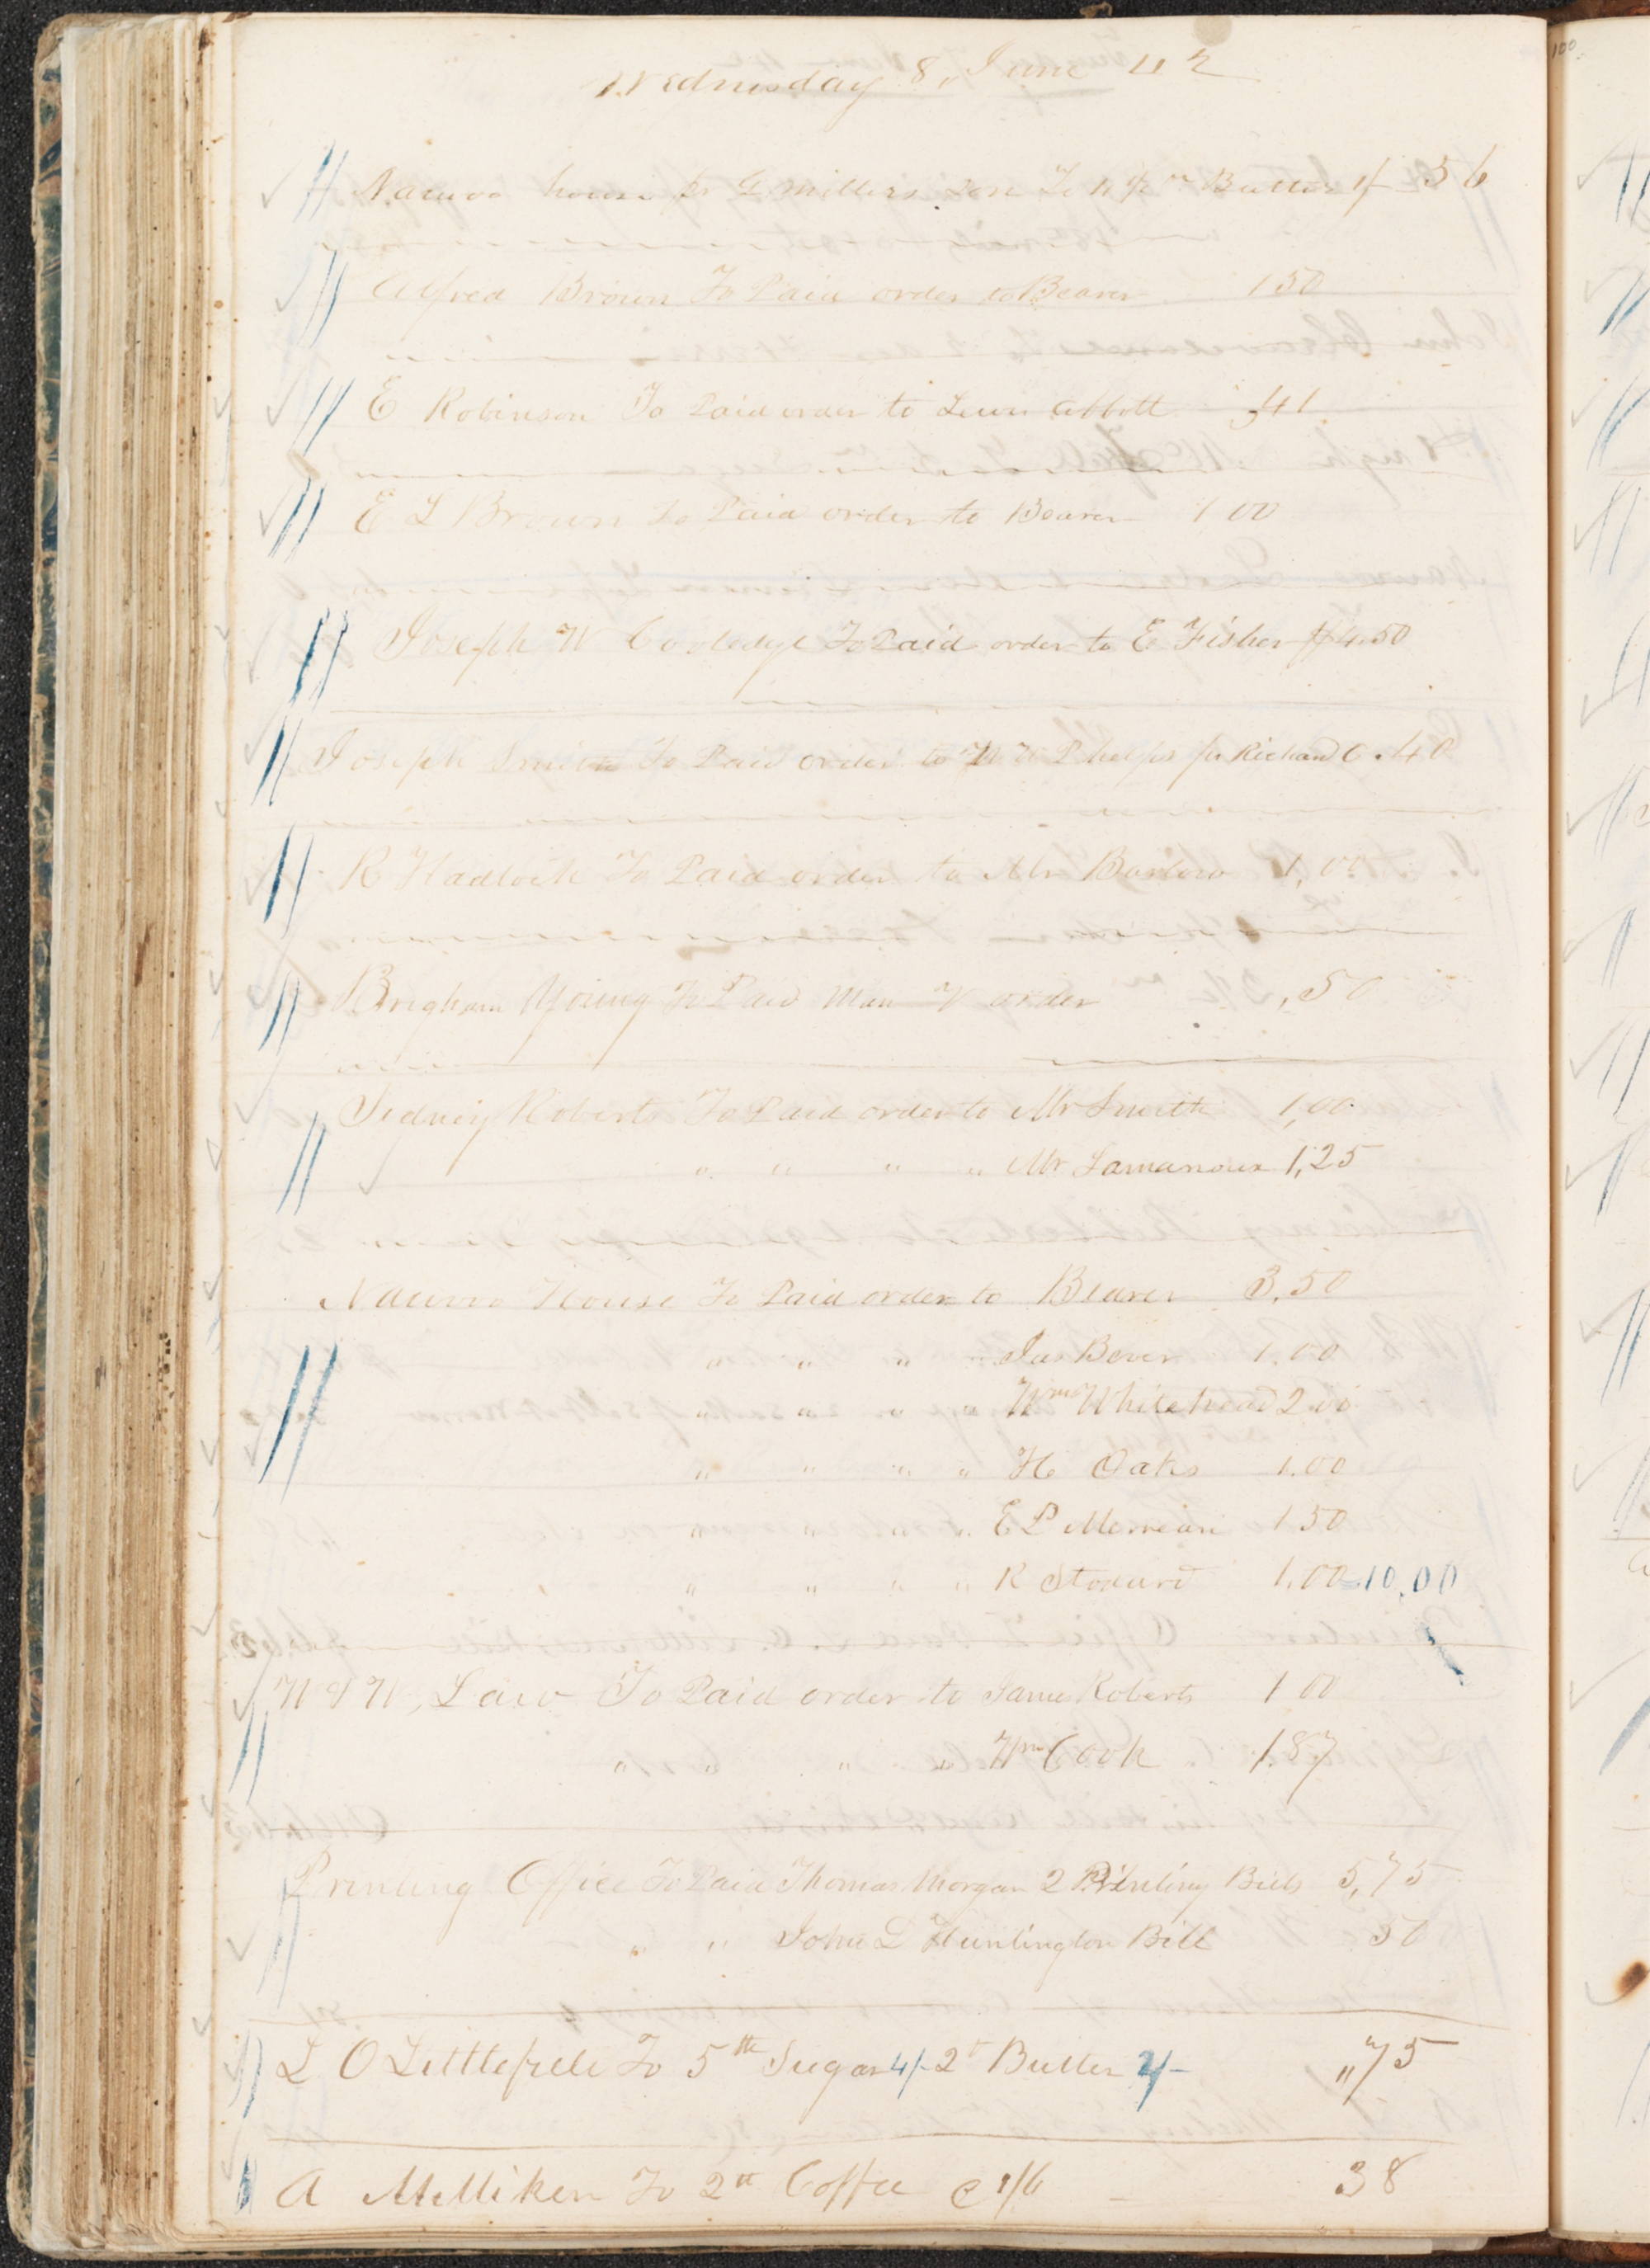 Wednesday 8, June 42
Nauvoo house pr G Millers Son To 4 1/2 lb Butter 1/- 56
Alfred Brown To Paid order to Bearer 1 50
E Robinson To Paid order to Lewis Abbott 41
E L Brown To Paid order to Bearer 1 00
Joseph W Cooledge To Paid order to E Fisher $4.50
Joseph Smith To Paid order to W W Phelps pr Richard 0.40
R Hadlock To Paid order to Mr Barlow 1,00
Brigham Young To Paid Man V order ,50
Sidney Roberts To Paid order to Mr Smith 1,00
" " " " Mr Lamareaux 1,25
Nauvoo House To Paid order to Bearer 3,50
" " " " Jas Bever 1.00
" " " " Wm Whitehead 2.00
" " " " H Oaks 1.00
" " " " E P Merriam 1.50
" " " " R Stodard 1.00 10,00
W & W, Law To Paid order to James Roberts 1 00
" " " " Wm Cook 1.87
Printing Office To Paid Thomas Morgan 2 Printing Bills 5,75
" " John D Huntington Bill 50
L O Littlefield To 5 lb Sugar 4/- 2 lb Butter 2/- "75
A Milliken To 2 lb Coffee @ 1/6 38
100